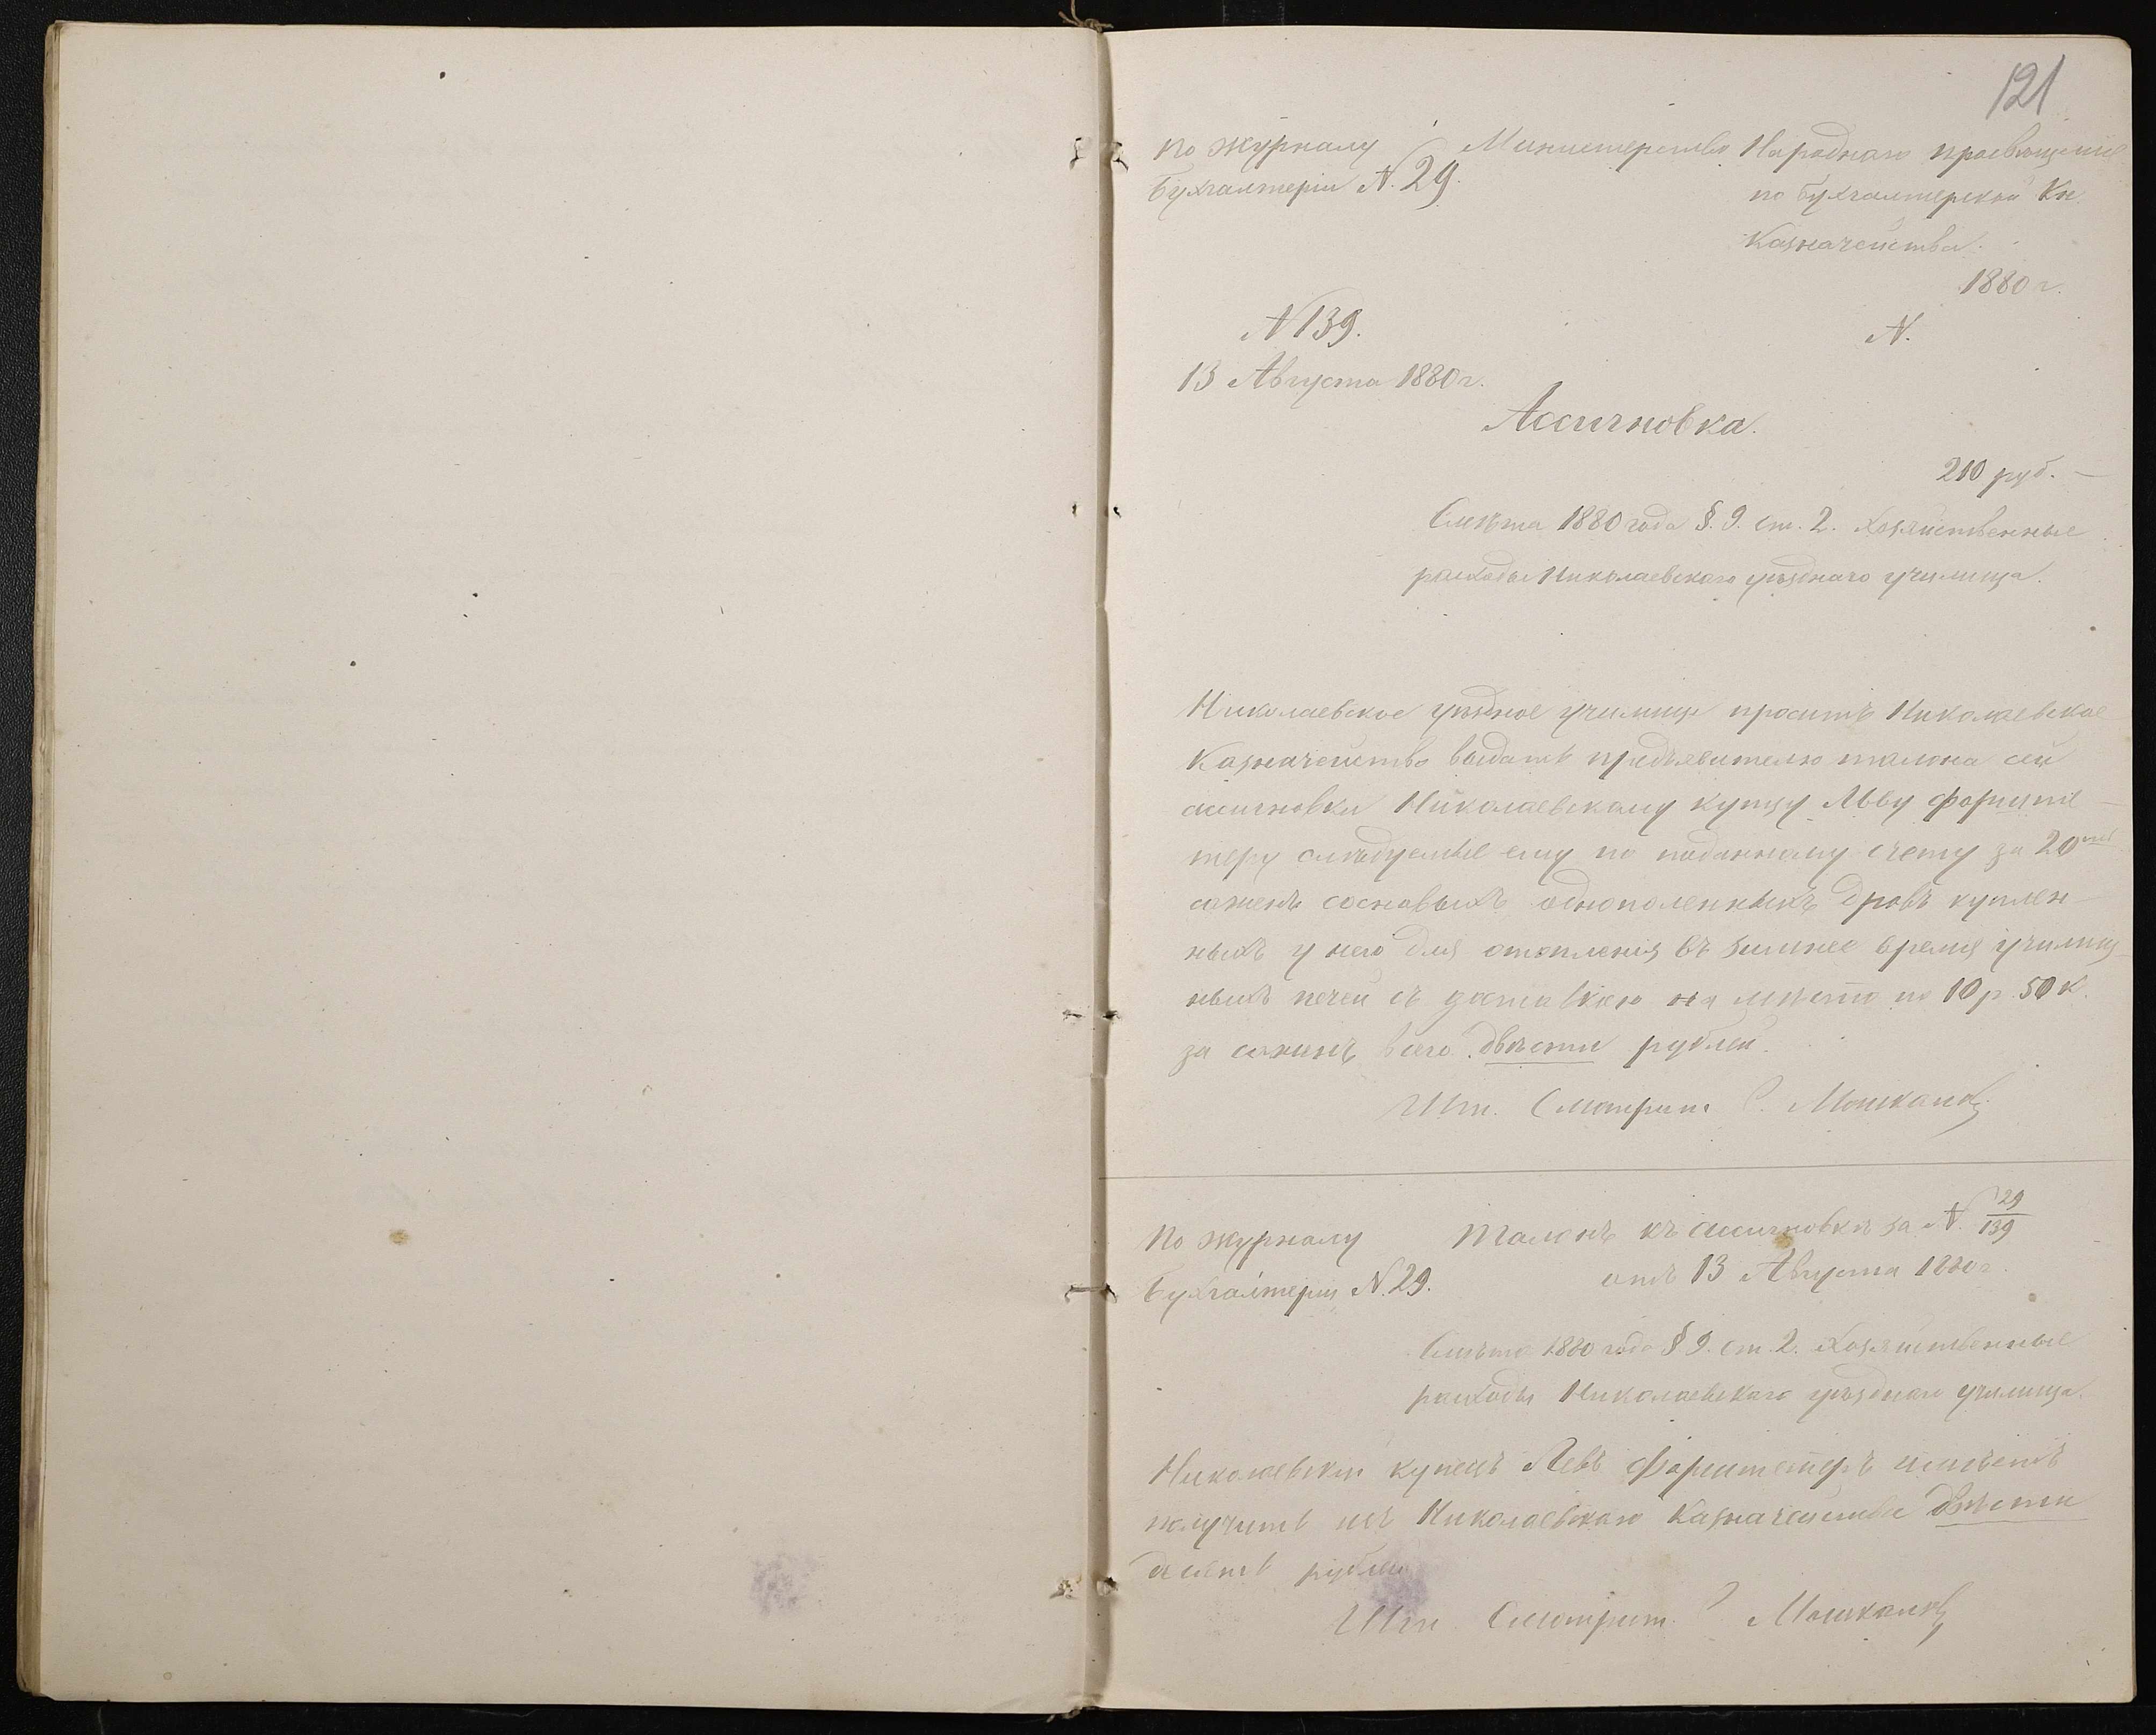 121
По журналу
бухгалтеріи N. 29.
Министерство Народнаго просвѣщенія
по бухгалтерской Кн.
Казначейства.
1880 г.
N 139.
N.
13 Августа 1880 г.
Ассигновка.
210 руб. —
Смѣта 1880 года §. 9. ст. 2. Хозяйственные
расходы Николаевскаго уѣзднаго училища.
Николаевское уѣздное училище проситъ Николаевское
Казначейство выдать предъявителю талона сей
ассигновки Николаевскому купцу Льву Форште-
теру слѣдуемые ему по поданному счету за 20
сажень сосновыхъ однополенныхъ дровъ куплен-
ныхъ у него для отопленія въ зимнее время училищ-
ныхъ печей съ доставкою на мѣсто по 10 р. 50 к.
за сажень всего двѣсти рублей.
Шт. Смотрит. Мошкалевъ
По журналу
бухгалтеріи N. 29.
Талонъ къ ассигновкѣ за N. 29/139
отъ 13 Августа 1880 г.
Смѣта 1880 года § 9. ст. 2. Хозяйственные
расходы Николаевскаго уѣзднаго училища.
Николаевскій купецъ Левъ Форштетеръ имѣетъ
получить изъ Николаевскаго Казначейства двѣсти
десять рублей
Шт. Смотрит. Мошкалевъ